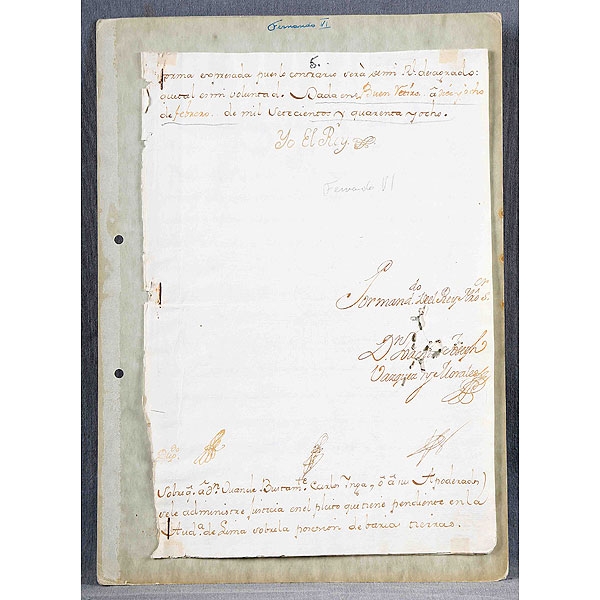 Fernando VI
5.
forma expresada pues lo contrario será de mi R. desagrado:
que tal es mi voluntad. Dada en Buen Retiro a diez y ocho
de febrero de mil setecientos y quarenta y ocho.
Yo El Rey.
Fernando VI
Por mand.do del Rey Nro S.or
D.n Joseph
Vazquez y Morales
Dup.do
Sobre q. a D.n Juan de Bustam.te Carlos Inga, o a su Apoderado
se le administre justicia en el pleito que tiene pendiente en la
Aud.a de Lima sobre la posesion de varias tierras.